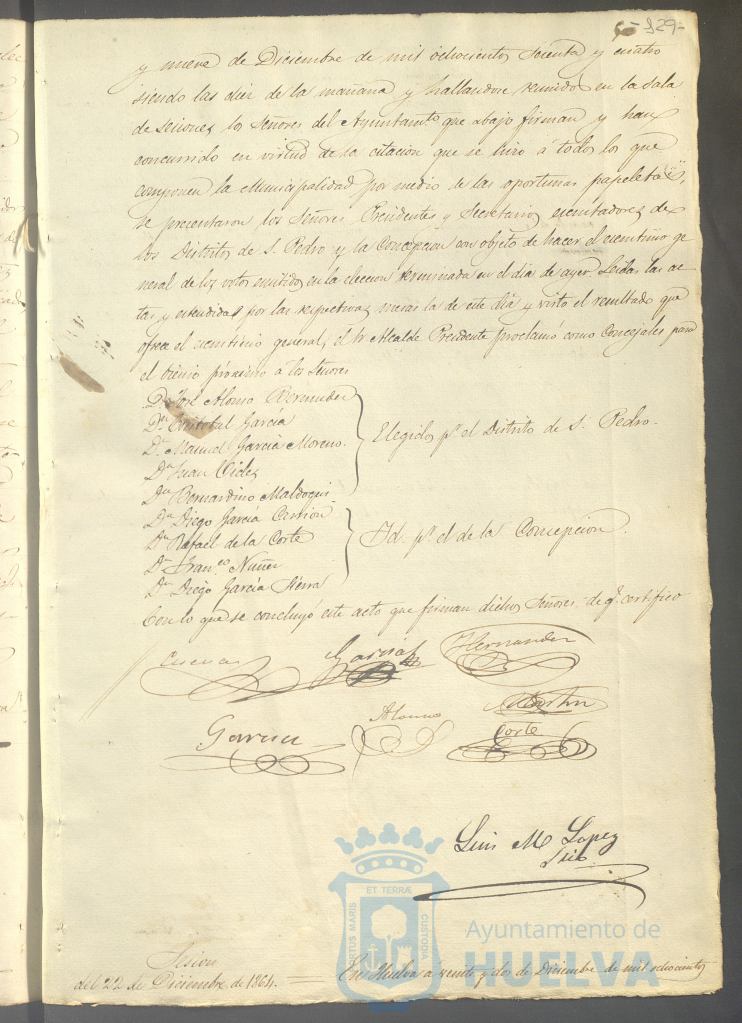 129-
y nueve de Diciembre de mil ochocientos sesenta y cuatro
siendo las diez de la mañana y hallandose reunidos en la Sala
de sesiones los Señores del Ayuntamto que abajo firman y han
concurrido en virtud de la citacion que se hizo á todos los que
componen la Municipalidad por medio de las oportunas papeletas,
se presentaron los Señores Presidentes y Secretarios escrutadores de
los Distritos de S. Pedro y la Concepcion con objeto de hacer el escrutinio ge
neral de los votos emitidos en la eleccion terminada en el dia de ayer. Leidas las ac
tas y estendidas por las respectivas mesas la de este dia y visto el resultado que
ofrece el escrutinio general, el Sr Alcalde Presidente proclamó como Concejales para
el bienio próximo á los Señores
Dn José Alonso Bermudez
Dn Cristobal García
Dn Manuel García Moreno.
Dn Juan Vides
Dn Bernardino Maldoqui.
Elegidos pr el Distrito de S. Pedro.
Dn Diego García Carrion
Dn Rafael de la Corte
Dn Franco Nuñez
Dn Diego García Sierra
Id. pr el de la Concepcion.
Con lo que se concluyó este acto que firman dichos Señores de q. certifico
Cuenca
García
Hernandez
Garcia
Alonso
Martin
Corte
Luis M Lopez
Srio
PORTUS MARIS ET TERRÆ CUSTODIA
Ayuntamiento de
HUELVA
Sesion
del 22 de Diciembre de 1864. = En Huelva á veinte y dos de Diciembre de mil ochocientos